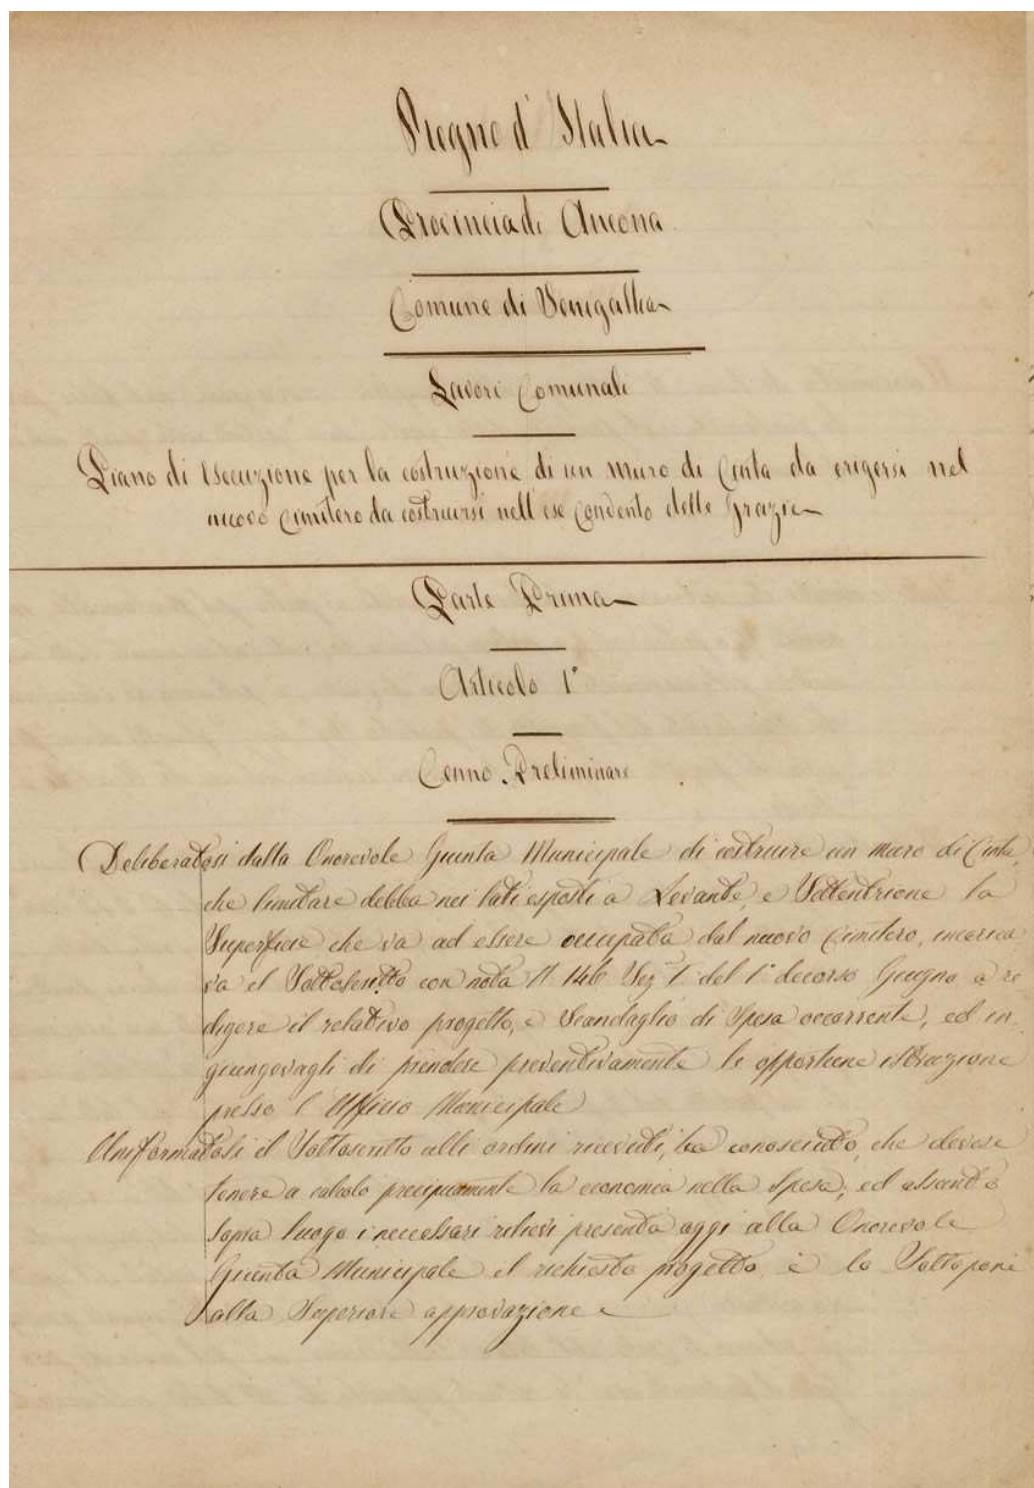 Regno d'Italia
Provincia di Ancona
Comune di Senigallia
Lavori Comunali
Piano di Esecuzione per la costruzione di un muro di Cinta da erigersi nel
nuovo Cimitero da costruirsi nell'ex Convento delle Grazie
Parte Prima
Articolo 1°
Cenno Preliminare
Deliberatosi dalla Onorevole Giunta Municipale di costruire un muro di Cinta,
che limitare debba nei lati esposti a Levante, e Settentrione la
Superficie che va ad essere occupata dal nuovo Cimitero, incarica
va il Sottoscritto con nota N 146 Sez 1 del 1° decorso Giugno a re
digere il relativo progetto, e Scandaglio di Spesa occorrente, ed in
giungevagli di prendere preventivamente le opportune istruzione
presso l'Ufficio Municipale
Uniformatosi il Sottoscritto alli ordini ricevuti, ha conosciuto, che devesi
tenere a calcolo precipuamente la economia nella Spesa, ed
sopra luogo i necessari rilievi presenta oggi alla Onorevole
Giunta Municipale il richiesto progetto e lo Sottopone
alla Superiore approvazione